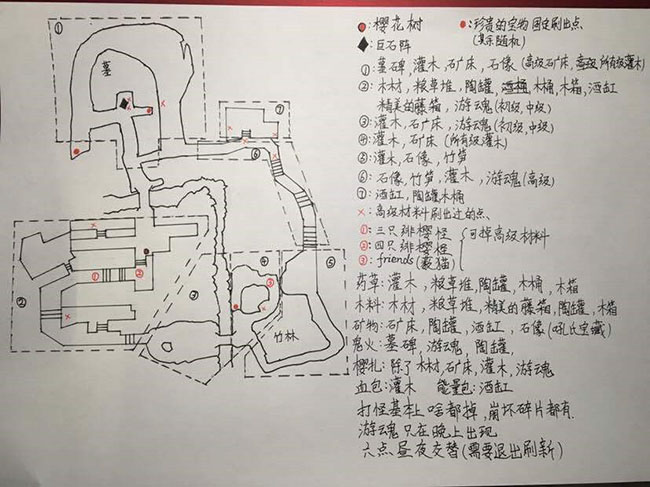 ①
墓
⑦
⑥
②
①
②
③
④
③
⑤
竹林
●:樱花树
●:珍贵的宝物 固定刷出点
(真乐随机)
◆:巨石阵
①:墓碑,灌木,矿床,石像(高级矿床,高级所有级灌木)
②:木材,粮草堆,陶罐,酒桶,木桶,木箱,酒缸
精美的藤箱,游魂(初级,中级)
③:灌木,矿床,游魂(初级,中级)
④:灌木,矿床(所有级灌木)
⑤:灌木,石像,竹笋
⑥:石像,竹笋,灌木,游魂(高级)
⑦:酒缸,陶罐木桶
×:高级材料刷出过的点.
①:三只绯樱怪
②:四只绯樱怪
可掉高级材料
③:friends(薮猫)
药草:灌木,粮草堆,陶罐,木桶,木箱
木料:木材,粮草堆,精美的藤箱,陶罐,木箱
矿物:石床,陶罐,酒缸,石像(吼氏宝藏)
鬼火:墓碑,游魂,陶罐,
樱札:除了木材,矿床,灌木,游魂
血包:灌木 能量包:酒缸
打怪基本上啥都掉,崩坏碎片都有.
游魂只在晚上出现
六点昼夜交替(需要退出刷新)